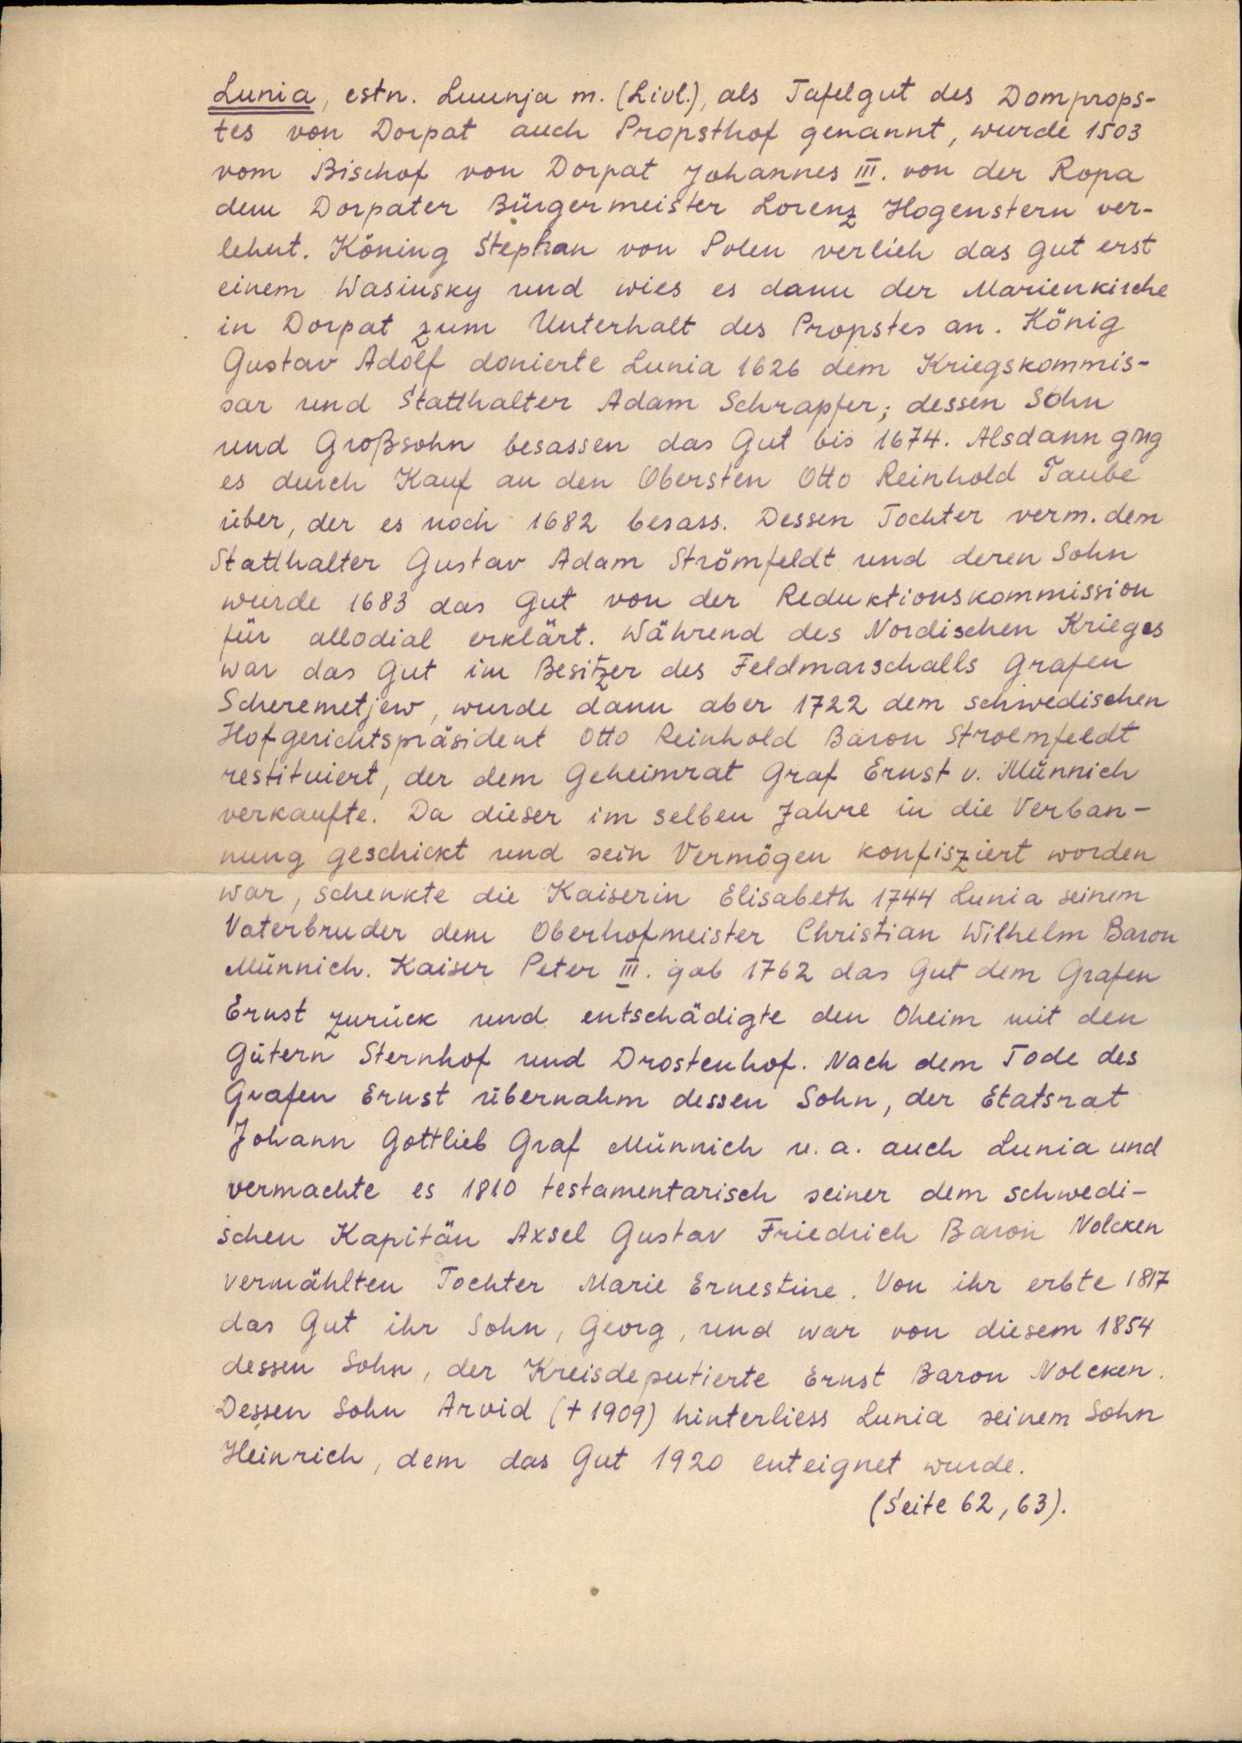 Lunia, estn. Luunja m. (Livl.), als Tafelgut des Domprops-
tes von Dorpat auch Propsthof genannt, wurde 1503
vom Bischof von Dorpat Johannes III. von der Ropa
dem Dorpater Bürgermeister Lorenz Hogenstern ver-
lehnt. Köning Stephan von Polen verlieh das Gut erst
einem Wasinsky und wies es dann der Marienkirche
in Dorpat zum Unterhalt des Propstes an. König
Gustav Adolf donierte Lunia 1626 dem Kriegskommis-
sar und Statthalter Adam Schrapfer; dessen Sohn
und Großsohn besassen das Gut bis 1674. Alsdann ging
es durch Kauf an den Obersten Otto Reinhold Taube
über, der es noch 1682 besass. Dessen Tochter verm. dem
Statthalter Gustav Adam Strömfeldt und deren Sohn
wurde 1683 das Gut von der Reduktionskommission
für allodial erklärt. Während des Nordischen Krieges
war das Gut im Besitzer des Feldmarschalls Grafen
Scheremetjew, wurde dann aber 1722 dem schwedischen
Hofgerichtspräsident Otto Reinhold Baron Stroemfeldt
restituiert, der dem Geheimrat Graf Ernst v. Münnich
verkaufte. Da dieser im selben Jahre in die Verban-
nung geschickt und sein Vermögen konfisziert worden
war, schenkte die Kaiserin Elisabeth 1744 Lunia seinem
Vaterbruder dem Oberhofmeister Christian Wilhelm Baron
Münnich. Kaiser Peter III. gab 1762 das Gut dem Grafen
Ernst zurück und entschädigte den Oheim mit den
Gütern Sternhof und Drostenhof. Nach dem Tode des
Grafen Ernst übernahm dessen Sohn, der Etatsrat
Johann Gottlieb Graf Münnich u. a. auch Lunia und
vermachte es 1810 testamentarisch seiner dem schwedi-
schen Kapitän Axsel Gustav Friedrich Baron Nolcken
vermählten Tochter Marie Ernestine. Von ihr erbte 1817
das Gut ihr Sohn, Georg, und war von diesem 1854
dessen Sohn, der Kreisdeputierte Ernst Baron Nolcken.
Dessen Sohn Arvid († 1909) hinterliess Lunia seinem Sohn
Heinrich, dem das Gut 1920 enteignet wurde.
(Seite 62, 63).